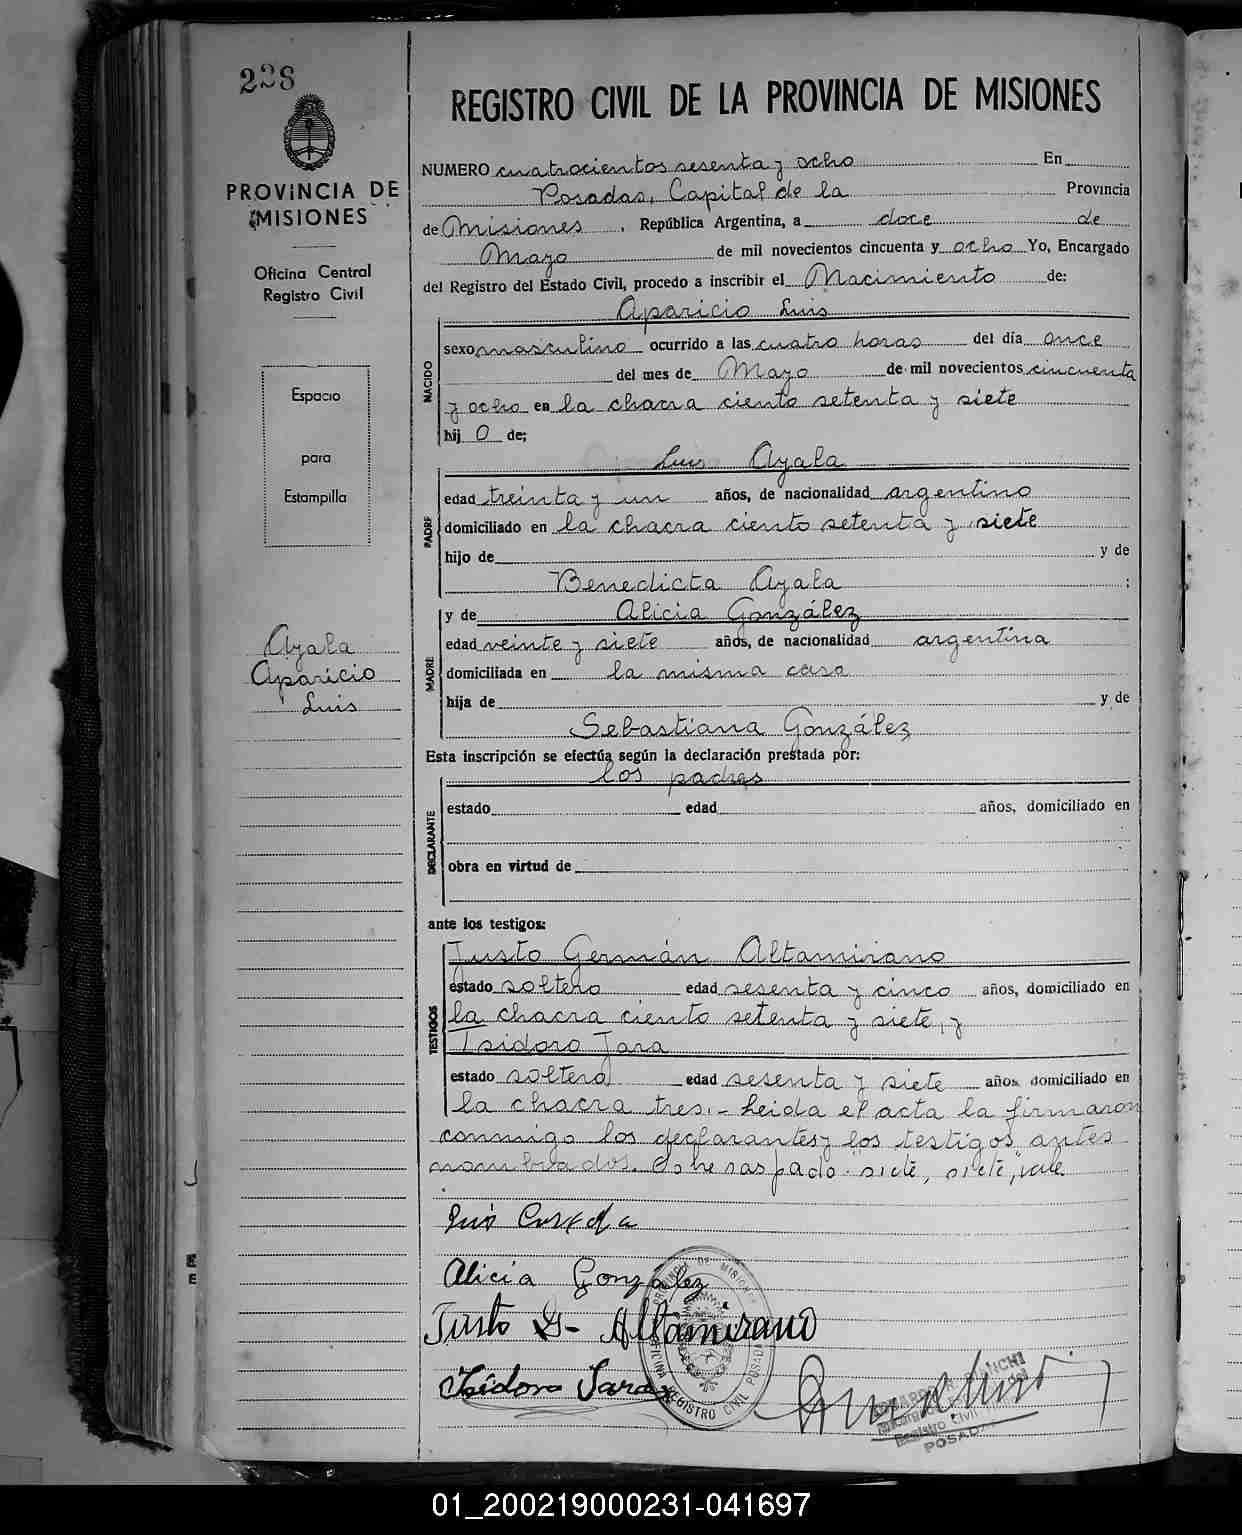 228
PROVINCIA DE
MISIONES
Oficina Central
Registro Civil
Espacio
para
Estampilla
Ayala
Aparicio
Luis
REGISTRO CIVIL DE LA PROVINCIA DE MISIONES
NUMERO cuatrocientos sesenta y ocho En
Posadas, Capital de la Provincia
de Misiones, República Argentina, a doce de
Mayo de mil novecientos cincuenta y ocho Yo, Encargado
del Registro del Estado Civil, procedo a inscribir el Nacimiento de:
Aparicio Luis
NACIDO
sexo masculino ocurrido a las cuatro horas del día once
del mes de Mayo de mil novecientos cincuenta
y ocho en la chacra ciento setenta y siete
hij o de;
Luis Ayala
PADRE
edad treinta y un años, de nacionalidad argentino
domiciliado en la chacra ciento setenta y siete
hijo de y de
Benedicta Ayala ;
MADRE
y de Alicia González
edad veinte y siete años, de nacionalidad argentina
domiciliada en la misma casa
hija de y de
Sebastiana González
Esta inscripción se efectúa según la declaración prestada por:
los padres
DECLARANTE
estado edad años, domiciliado en
obra en virtud de
ante los testigos:
TESTIGOS
Justo Germán Altamirano
estado soltero edad sesenta y cinco años, domiciliado en
la chacra ciento setenta y siete, y
Isidoro Jara
estado soltero edad sesenta y siete años, domiciliado en
la chacra tres.- Leida el acta la firmaron
conmigo los declarantes y los testigos antes
nombrados. So he raspado "siete, siete", vale
Luis
Alicia González
Justo G- Altamirano
Isidoro Jara
PROVINCIA DE MISIONES
OFICINA REGISTRO CIVIL POSADAS
Registro Civil
POSADAS
01_200219000231-041697